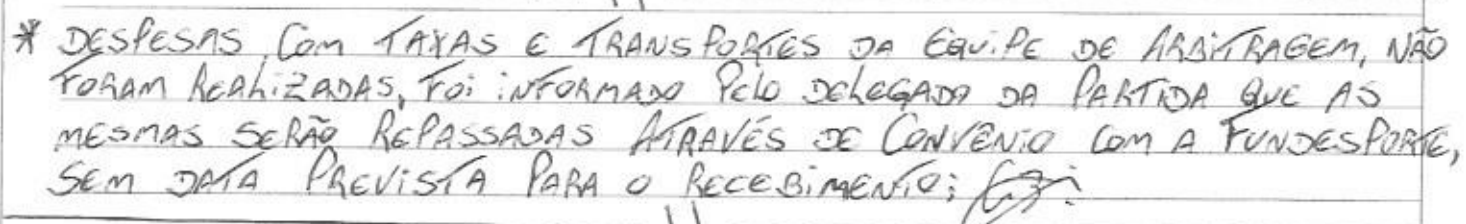 * DESPESAS, COM TAXAS E TRANSPORTES DA EQUIPE DE ARBITRAGEM, NÃO
FORAM REALIZADAS, FOI INFORMADO PELO DELEGADO DA PARTIDA QUE AS
MESMAS SERÃO REPASSADAS ATRAVÉS DE CONVÊNIO COM A FUNDESPORTE,
SEM DATA PREVISTA PARA O RECEBIMENTO;